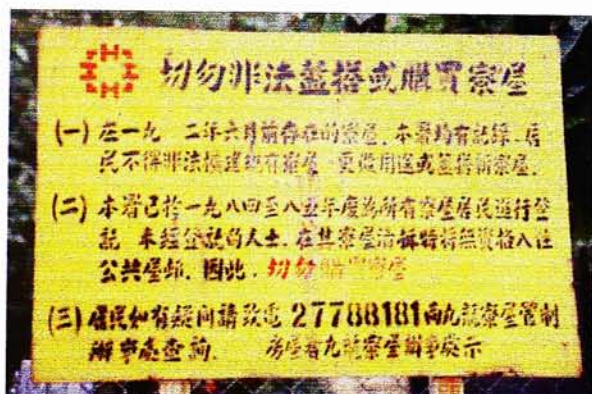 切勿非法蓋搭或購買寮屋
(一) 在一九 二年六月前存在的寮屋、本署均有記錄、居
民不得非法 寮屋、更改用途或蓋搭新寮屋.
(二) 本署已於一九八四至八五年度為所有寮屋居民進行登
記 未經登記的人士、在其寮屋清拆時將無資格入住
公共屋邨. 因此、切勿購買寮屋
(三) 居民如有疑問請致電 27788181向九龍寮屋管制
辦事處查詢. 房屋署九龍寮屋辦事處示